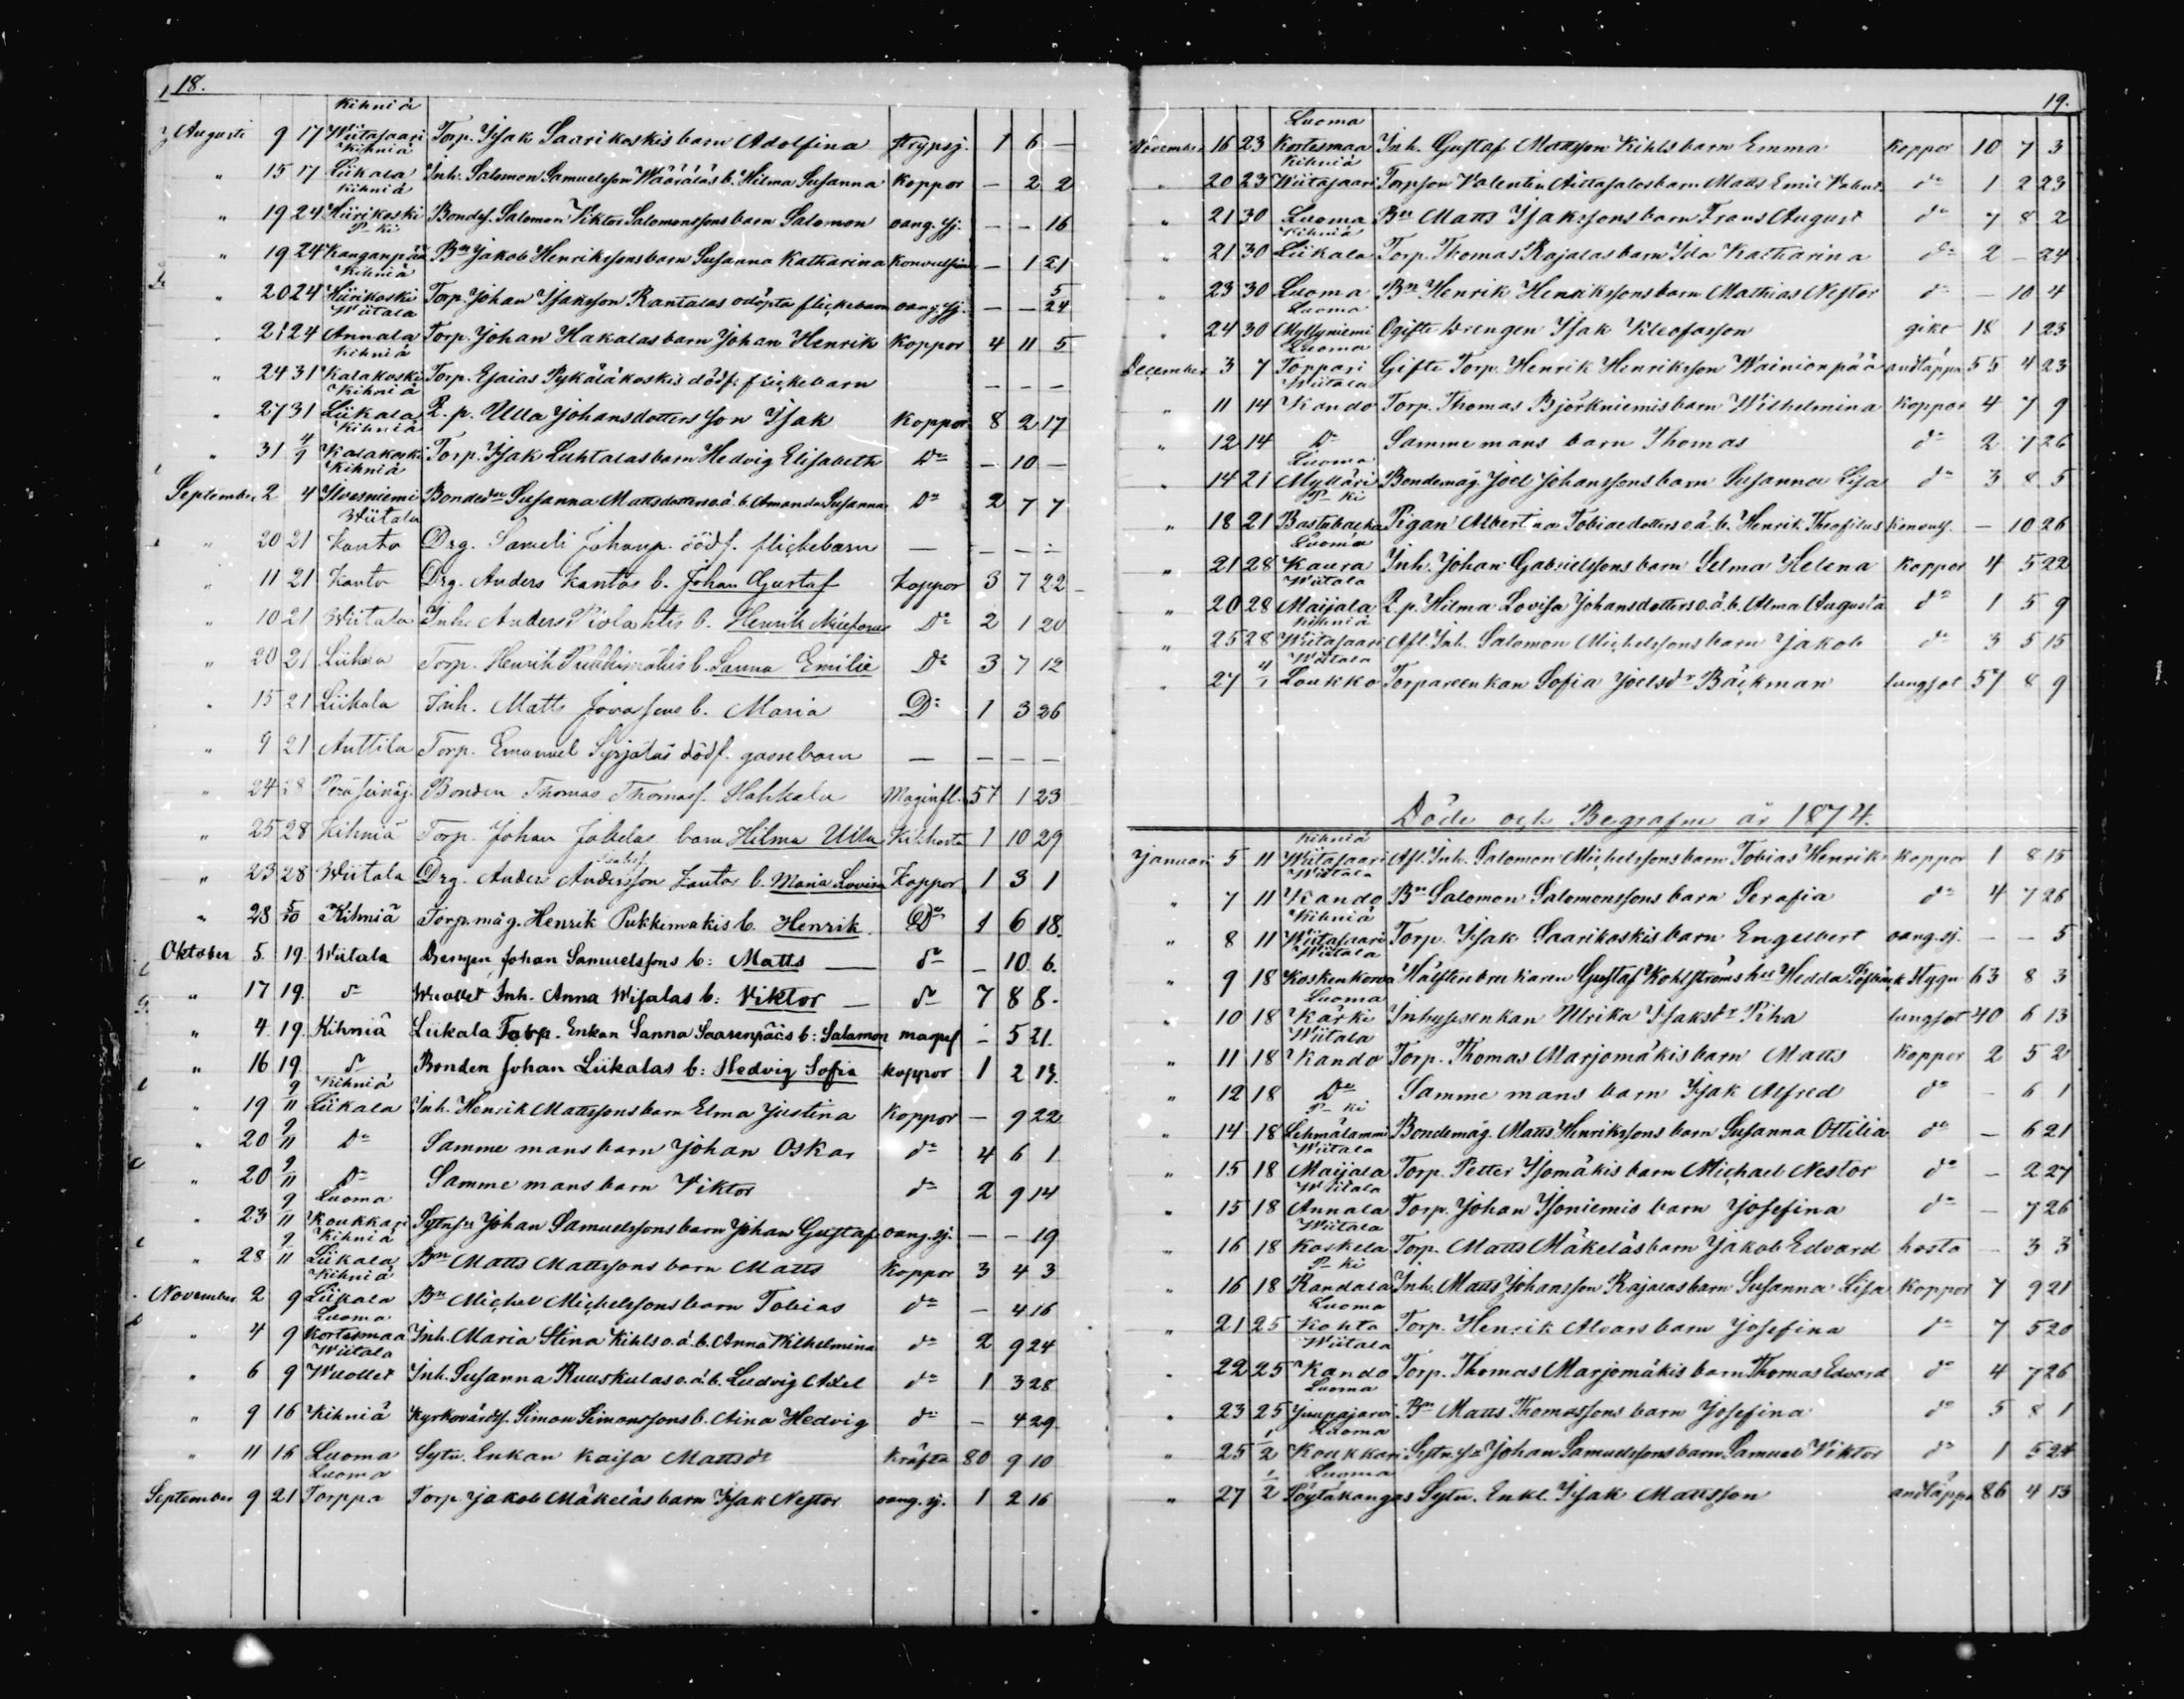 18.
Kihniä
Augusti 9 17 Wiitasaari Torp. Isak Saarikoskis barn Adolfina Strypsj. 1 6 —
Kihniä
" 15 17 Liikala Inh. Salomon Samuelsson Wääräläs b. Hilma Susanna Koppor — 2 2
Kihniä
" 19 24 Hiirikoski Bondes. Salomon Viktor Salomonssons barn Salomon oang. sj. — — 16
P-ki
" 19 24 Kanganpää Bn Jakob Henrikssons barn Susanna Katharina Konvulsion — 1 21
Kihniä
" 20 24 Hiirikoski Torp. Johan Isaksson Rantalas odöpta flickebarn oang. sj. — — 5/24
Wiitala
" 21 24 Annala Torp. Johan Hakalas barn Johan Henrik Koppor 4 11 5
Kihniä
" 24 31 Kalakoski Torp. Esaias Pykäläkoskis dödf. flickebarn — — —
Kihniä
" 27 31 Liikala Q. p. Ulla Johansdotters son Isak Koppor 8 2 17
Kihniä
" 31 4/9 Kalakoski Torp. Isak Luhtalas barn Hedvig Elisabeth Do — 10 —
Kihniä
September 2 4 Ilvesniemi Bondedr Susanna Mattsdotters o.ä. b. Amanda Susanna Do 2 7 7
Wiitala
" 20 21 Kanto Drg. Sameli Johanp. dödf. flickebarn — — — —
" 11 21 Kanto Drg. Anders Kantos b. Johan Gustaf Koppor 3 7 22
" 10 21 Wiitala Inh. Anders Piolahtis b. Henrik Do 2 1 20
" 20 21 Torp. Henrik Pukkimäkis b. Sanna Emilie Do 3 7 12
" 15 21 Liikala Inh. Matts b. Maria D: 1 3 26
" 9 21 Anttila Torp. Emanuel Syrjäläs dödf. gossebarn — — — —
" 24 28 Peräseinäj. Bonden Thomas Thomass. Hahkala Maginfl. 57 1 23
" 25 28 Kihniä Torp. Johan barn Hilma Ulla Kikhosta 1 10 29
" 23 28 Wiitala Drg. Anders Andersson Kantos b. Maria Lovisa Koppor 1 3 1
" 28 5/10 Kihniä Torp.mäg. Henrik Pukkimäkis b. Henrik. Do 1 6 18.
Oktober 5. 19. Wiitala Drengen Johan Samuelssons b: Matts — do — 10. 6.
" 17 19. do Wuollet Inh. Anna Wisalas b: Viktor — do 7 8 8.
" 4. 19. Kihniä Liikala Torp. Enkan Sanna Saarenpääs b: Salamon magpl — 5 21.
" 16 19 do Bonden Johan Liikalas b: Hedvig Sofia koppor 1 2 13.
Kihniä
" 19 9/11 Liikala Inh. Henrik Mattssons barn Elma Justina Koppor — 9 22
" 20 9/11 Do Samme mans barn Johan Oskar do 4 6 1
" 20 9/11 Do Samme mans barn Viktor do 2 9 14
Luoma
" 23 9/11 Koukkari Sytn.s. Johan Samuelssons barn Johan Gustaf oang. sj. — — 19
Kihniä
" 28 9/11 Liikala Bn Matts Mattssons barn Matts Koppor 3 4 3
Kihniä
November 2 9 Liikala Bn Michel Michelssons barn Tobias do — 4 16
Luoma
" 4 9 Kortesmaa Inh. Maria Stina Kihls o.ä. b. Anna Wilhelmina do 2 9 24
Wiitala
" 6 9 Wuollet Inh. Susanna Ruuskulas o.ä. b. Ludvig Axel do 1 3 28
" 9 16 Kihniä Kyrkovärds. Simon Simonssons b. Aina Hedvig do — 4 29.
" 11 16 Luoma Sytn. Enkan Kaisa Mattsdr Kräfta 80 9 10
Luoma
September 9 21 Torppa Torp. Jakob Mäkeläs barn Isak Nestor oang. sj. 1 2 16
19.
Luoma
November 16 23 Kortesmaa Inh. Gustaf Mattsson Kihls barn Emma Koppor 10 7 3
Kihniä
" 20 23 Wiitasaari Torpson Valentin Aittasalos barn Matts Emil do 1 2 23
" 21 30 Luoma Bn Matts Isakssons barn Frans August do 7 8 2
Kihniä
" 21 30 Liikala Torp. Thomas Rajalas barn Ida Katharina do 2 — 24
" 23 30 Luoma Bn Henrik Henrikssons barn Mathias Nestor do — 10 4
Luoma
" 24 30 Myllyniemi Ogifte drengen Isak Kleofasson gikt 18 1 23
Luoma
December 3 7 Toppari Gifte Torp. Henrik Henriksson Wainionpää andtäppa 55 4 23
Wiitala
" 11 14 Kando Torp. Thomas Björkniemis barn Wilhelmina Koppor 4 7 9
" 12 14 Do Samme mans barn Thomas do 2 7 26
Luoma
" 14 21 Mylläri Bondemåg Joel Johanssons barn Susanna Lisa do 3 8 5
P-ki
" 18 21 Bastubacka Pigan Albertina Tobiaedotters o.ä. b. Henrik Theofilus Konvuls. — 10 26
Luoma
" 21 28 Kaura Inh. Johan Gabrielssons barn Selma Helena Koppor 4 5 22
Wiitala
" 20 28 Maijala Q. p. Hilma Lovisa Johansdotters o.ä. b. Alma Augusta do 1 5 9
Kihniä
" 25 28 Wiitasaari Afl. Inh. Salomon Michelssons barn Jakob do 3 5 15
Wiitala
" 27 4/1 Loukko Torpareenkan Sofia Joelsdr Bäckman lungsot 57 8 9
Döde och Begrafne år 1874.
Kihniä
Januari 5 11 Wiitasaari Afl. Inh. Salomon Michelssons barn Tobias Henrik Koppor 1 8 15
Wiitala
" 7 11 Kando Bn Salomon Salomonssons barn Serafia do 4 7 26
Kihniä
" 8 11 Wiitasaari Torp. Isak Saarikoskis barn Engelbert oang. sj. — — 5
Wiitala
" 9 18 Koskenkorva Hälftenbrukaren Gustaf Kohlströms hu Hedda Stygn 63 8 3
Luoma
" 10 18 Kärki Inhyseenkan Ulrika Isaksdr Piha lungsot 40 6 13
Wiitala
" 11 18 Kando Torp. Thomas Marjomäkis barn Matts Koppor 2 5 2
" 12 18 Do Samme mans barn Isak Alfred do — 6 1
P-ki
" 14 18 Lehmälammi Bondemåg. Matts Henrikssons barn Susanna Ottilia do — 6 21
Wiitala
" 15 18 Maijala Torp. Petter Isomäkis barn Michael Nestor do — 2 27
Wiitala
" 15 18 Annala Torp. Johan Isoniemis barn Josefina do — 7 26
Wiitala
" 16 18 Koskela Torp. Matts Mäkeläs barn Jakob Edvard hosta — 3 3
P-ki
" 16 18 Randala Inh. Matts Johansson Rajalas barn Susanna Lisa Koppor 7 9 21
Luoma
" 21 25 Kohta Torp. Henrik Alvars barn Josefina do 7 5 20
Wiitala
" 22 25 Kando Torp. Thomas Marjomäkis barn Thomas Edvard do 4 7 26
Luoma
" 23 25 Juupajärvi Bn Matts Thomassons barn Josefina do 5 8 1
Luoma
" 25 1/2 Koukkari Sytn.s. Johan Samuelssons barn Samuel Viktor do 1 5 24
Luoma
" 27 1/2 Löytäkangas Sytn. Enkl. Isak Mattsson andtäppa 86 4 13